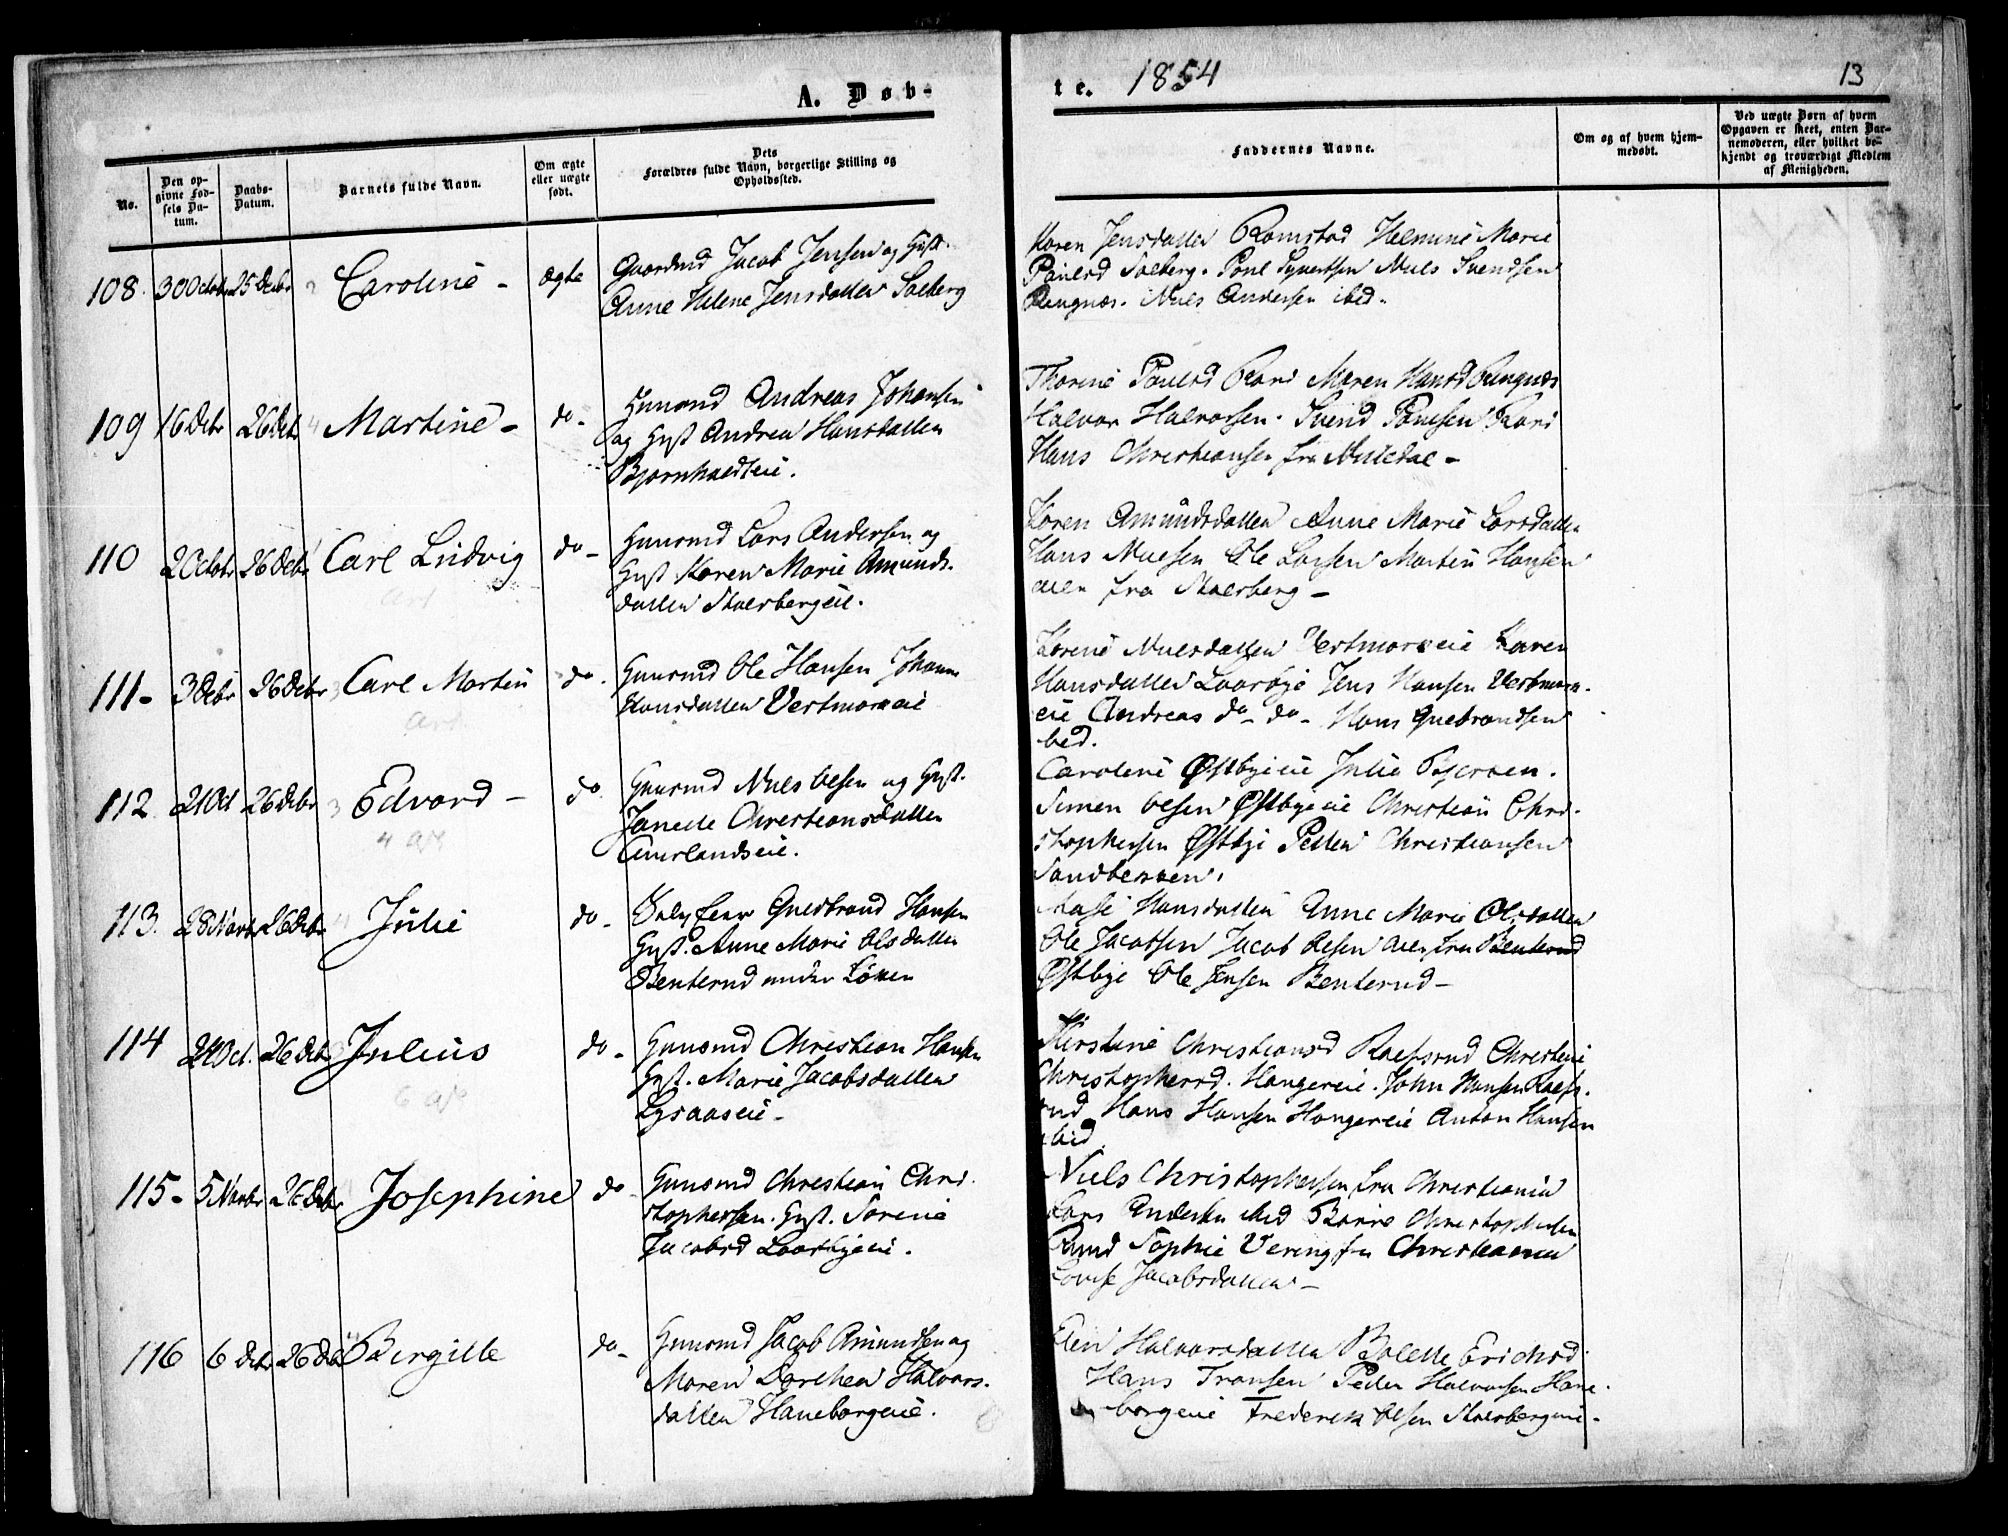 A. Døb-
te. 1854
13
No.
Den op-
givne Fød-
sels Da-
tum.
Daabs-
Datum.
Barnets fulde Navn.
Om ægte
eller uægte
født.
Dets
Forældres fulde Navn, borgerlige Stilling og
Opholdssted.
Faddernes Navne.
Om og af hvem hjem-
medøbt.
Ved uægte Børn af hvem
Opgaven er skeet, enten Bar-
nemoderen, eller hvilket be-
kjendt og troværdigt Medlem
af Menigheden.
108. 30 Octobr 25 Decbr Caroline - ægte
Gaardmd Jacob Jensen og Hust.
Anne Helene Jensdatter Solberg
Karen Jensdatter Romstad Helmine Marie
Paulsd Solberg. Poul Syvertsen Niels Svendsen
Ringnæs. Niels Andersen ibid.
109 16 Debr 26 Debr Martine - do -
Huusmd Andreas Johansen
og Hust Andrea Hansdatter
Bjørnholdteie.
Thorine Paulsd Kari Maren Hansd Ringnæs
Halvor Halvorsen. Svend Poulsen
Hans Christiansen fra
110 2 Octobr 26 Debr Carl Ludvig do -
Huusmd Lars Andersen og
Hust Karen Marie Amunds-
datter Skulerbergeie.
Karen Amundsdatter Anne Marie Larsdatter
Hans Nielsen Ole Larsen Martin Hansen
alle fra
111 - 3 Debr 26 Debr Carl Martin do -
Huusmd Ole Hansen Johanne
Hansdatter Vestmoreie
Karine Nielsdatter Vestmoreie Karen
Hansdatter Laarbye Jens Hansen Vestmor-
eie Andreas do - do - Hans Guldbrandsen
ibid.
112. 21 Oct 26 Debr Edvard - do
Huusmd Niels Olsen og Hust.
Janette Christiansdatter
Aurlandseie.
Caroline Østbyeie Julie
Simen Olsen Østbyeie Christian Chri-
stophersen Østbye Petter Christiansen
113. 28 Novbr 26 Debr Julie do -
Guldbrand Hansen
Hust. Anne Marie Olsdatter
Benterud under Løken
Aase Hansdatter Anne Marie Olsdatter
Ole Jacobsen Jacob Olsen alle fra Benterud
Østbye Ole Jensen Benterud -
114 24 Oct. 26 Debr Julius do -
Huusmd Christian Hansen
Hust. Marie Jacobsdatter
Lysaaseie -
Kirstine Christiansd Christine
Christophersd. Hangereie. John Hansen
rud Hans Hansen Hangereie Anton Hansen
ibid
115 - 5 Novbr 26 Debr Josephine do
Huusmd Christian Chri-
stophersen. Hust. Sørine
Jacobsd Laarbyeie.
Niels Christophersen fra Christiania
Lars Andersen ibid Christophersen
Rund Sophie Vering fra Christiania
Lovise Jacobsdatter -
116 6 Debr 26 Debr Birgitte do -
Huusmd Jacob Amundsen og
Maren Dorthea Halvors-
datter Haneborgeie.
Eli Halvorsdatter Bolette Erichsd
Hans Transen Peder Halvorsen Hane-
borgeie Frederik Olsen